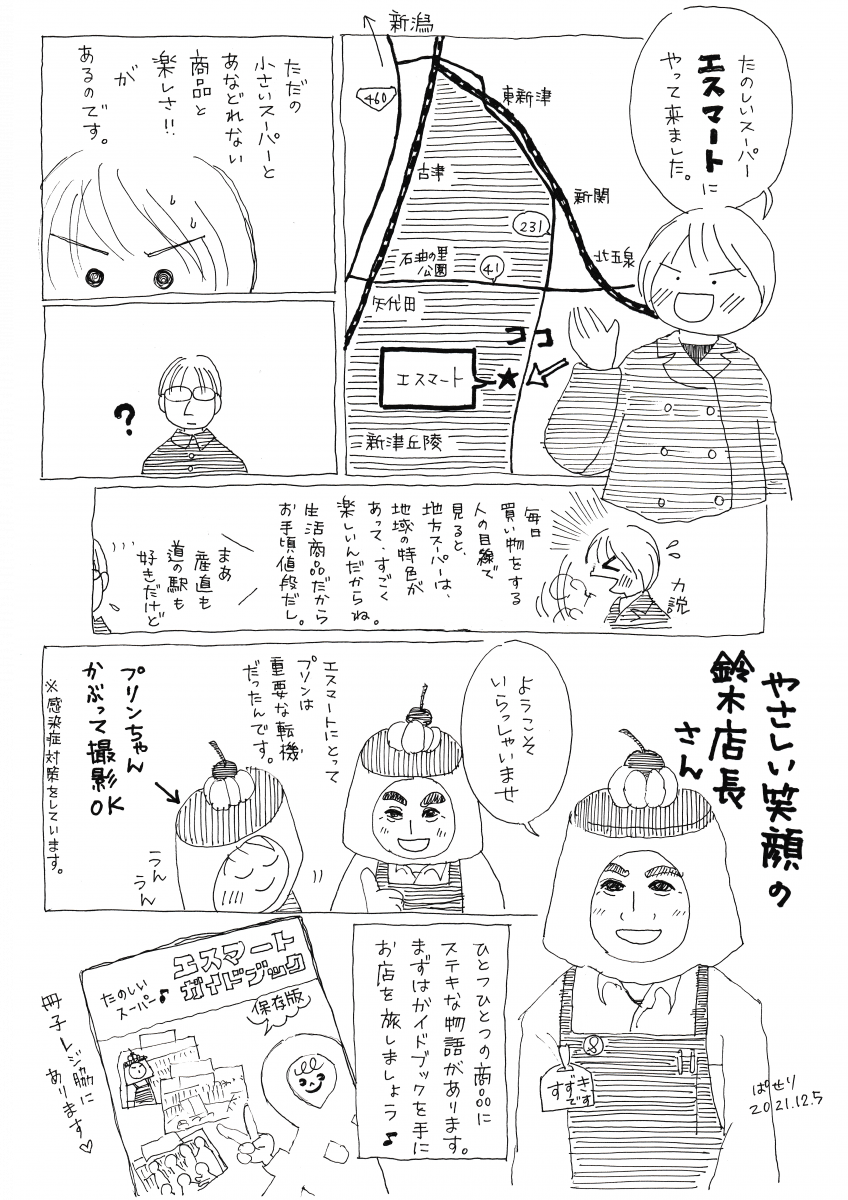 たのしいスーパー
エスマートに
やって来ました。
新潟
460
東新津
古津
新関
231
北五泉
石油の里
公園
41
矢代田
ココ
エスマート
新津丘陵
ただの
小さいスーパーと
あなどれない
商品と
楽しさ!!
が
あるのです。
?
毎日
買い物をする
人の目線で
見ると、
地方スーパーは、
地域の特色が
あって、すごく
楽しいんだからね。
生活商品だから
お手頃値段だし。
力説
まぁ
産直も
道の駅も
好きだけど
やさしい笑顔の
鈴木店長
さん
ようこそ
いらっしゃいませ
エスマートにとって
プリンは
重要な転機
だったんです。
プリンちゃん
かぶって撮影
OK
うん
うん
※感染症対策をしています。
すずき
です
ひとつひとつの商品に
ステキな物語があります。
まずはガイドブックを手に
お店を旅しましょう♪
たのしい
スーパー♪
エスマート
ガイドブック
保存版
冊子レジ脇に
あります♡
ぱせり
2021.12.5